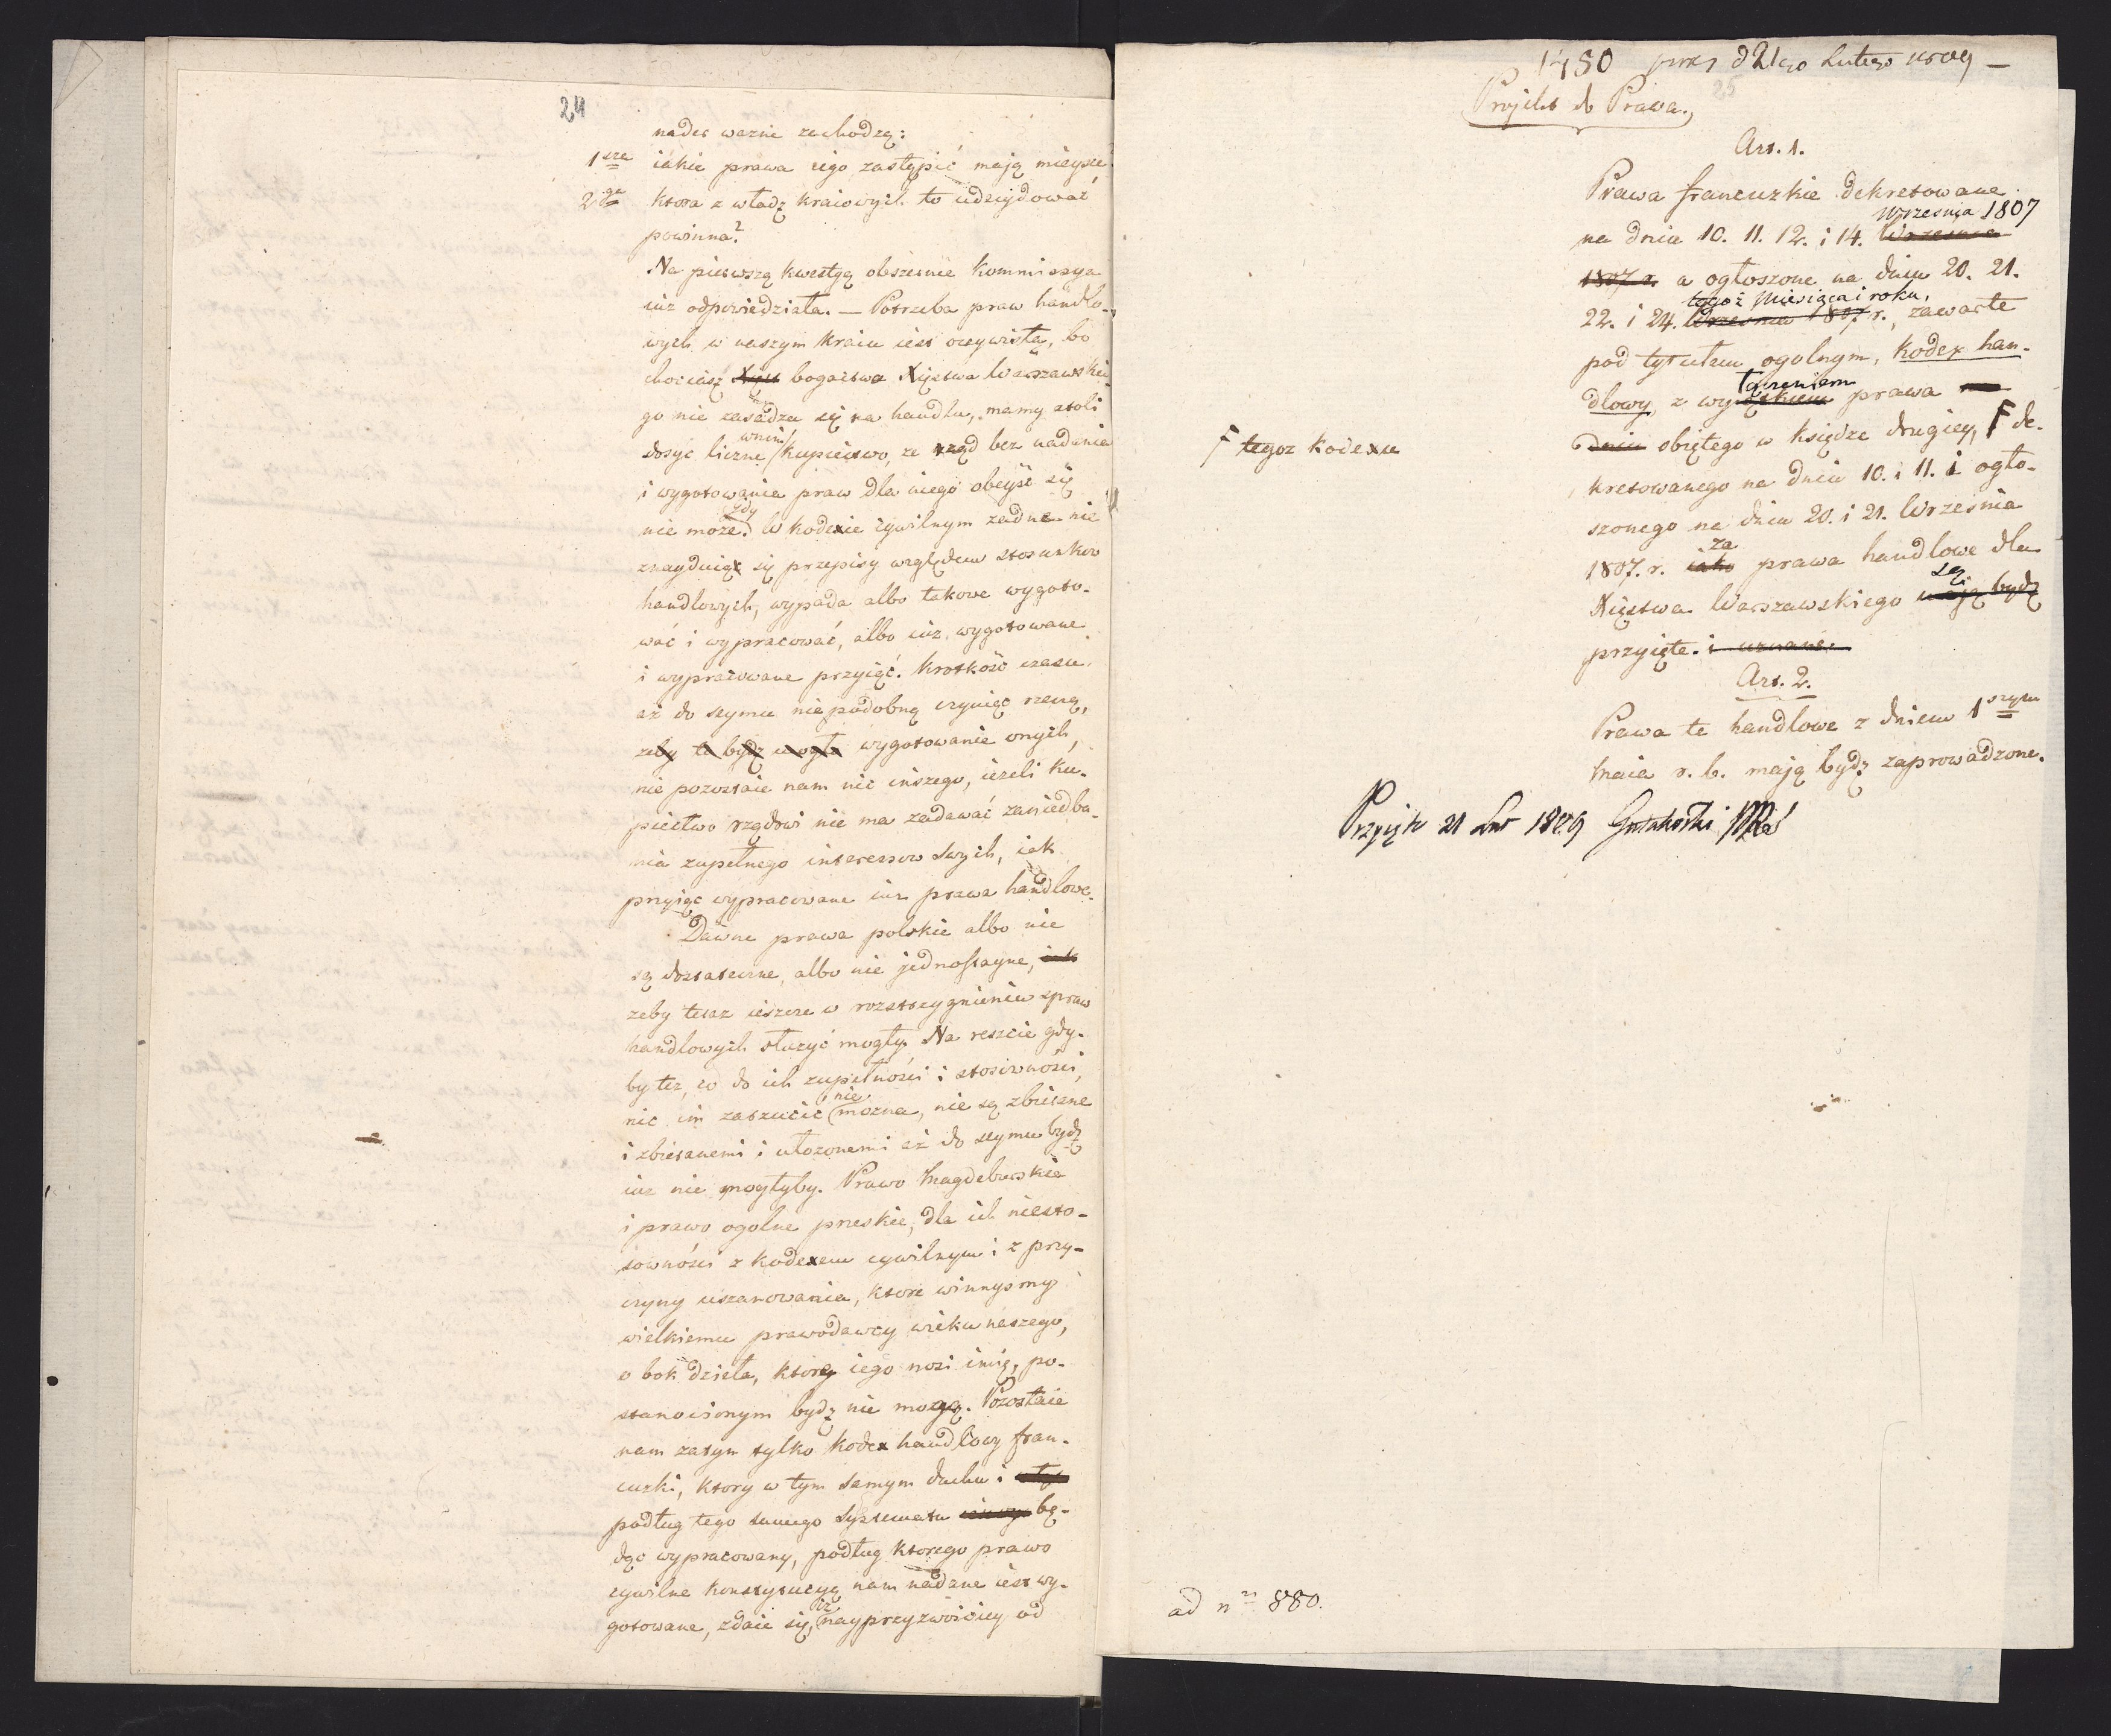 24
nader ważne zachodzą:
1sze iakie prawa iego zastąpić mają mieysce
2ga ktora z władz kraiowych to udecydować
powinna?
Na pierwszą kwestyą obszernie Kommissya
iuż odpowiedziała. — Potrzeba praw handlo-
wych w naszym kraiu iest oczywista, bo
chociasz bogactwa Xięstwa Warszawskie-
go nie zasadza się na handlu, mamy atoli
dosyć liczne w nim kupiectwo, ze rząd bez nadania
i wygotowania praw dla niego obeyść się
nie może. Gdy W kodexie cywilnym zadne nie
znayduią się przepisy względem stosunkow
handlowych, wypada albo takowe wygoto-
wać i wypracować, albo iuz wygotowane
i wypracowane przyiąć. Krotkość czasu
aż do seymu niepodobną czyniąc rzeczą,
zeby to bydź mogło wygotowanie onych,
nie pozostaie nam nic inszego, ieżeli ku-
piectwo rządowi nie ma zadawać zaniedba-
nia zupełnego interessow swych, iak
przyiąć wypracowane iuz prawa handlowe.
Dawne prawa polskie albo nie
są dostateczne, albo nie jednostayne, iak
zeby teraz ieszcze w rozstrzygnieniu spraw
handlowych służyć mogły. Na reszcie gdy-
by tez, co do ich zupełności i stosowności,
nic im zarzucić nie mozna, nie są zbierane
i zbieranemi i ułozonemi aż do seymu bydź
iuz nie mogłyby. Prawo Magdeburskie
i prawo ogolne pruskie, dla ich niesto-
sowności z kodexem cywilnym i z przy-
czyny uszanowania, ktore winnysmy
wielkiemu prawodawcy wieku naszego,
o bok dzieła, ktore iego nosi imię, po-
stanowionym bydź nie mogą. Pozostaie
nam zatym tylko Kodex handlowy fran-
cuzki, ktory w tym samym duchu i
podług tego samego systematu bę-
dąc wypracowany, podług ktorego prawo
cywilne konstytucyą nam nadane iest wy-
gotowane, zdaie się, iż nayprzyzwoiciey od
1480 prez d 21go Lutego 1809 —
25
Projekt do Prawa.
Art. 1.
Prawa francuzkie dekretowane
Września 1807
na dniu 10. 11. 12. i 14. Września
1807 r. a ogłoszone na dniu 20. 21.
tegoż Miesiąca i roku,
22. i 24. Września 1807 r., zawarte
pod tytułem ogolnym, Kodex han-
dlowy, z wyłączeniem prawa
dniu obiętego w księdze drugiey, F de-
F tegoz Kodexu
kretowanego na dniu 10. i 11. i ogło-
szonego na dniu 20. i 21. Września
za
1807. r. iako prawa handlowe dla
są
Xięstwa Warszawskiego maią bydź
przyięte. i uznane.
Art. 2.
Prawa te handlowe z dniem 1szym
Maia r. b. mają bydź zaprowadzone.
Przyięto 21 Lut 1809 Gutakowski
ad nr 880.